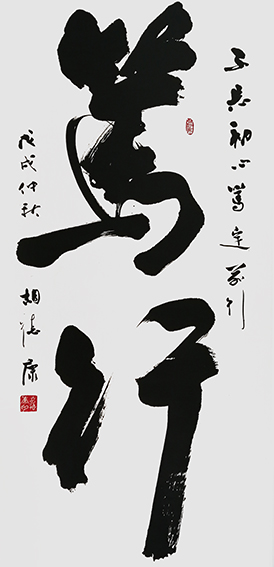 不忘初心篤定前行
篤行
戊戌仲秋